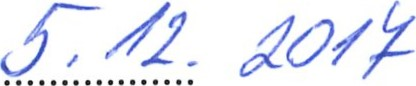 5. 12. 2017